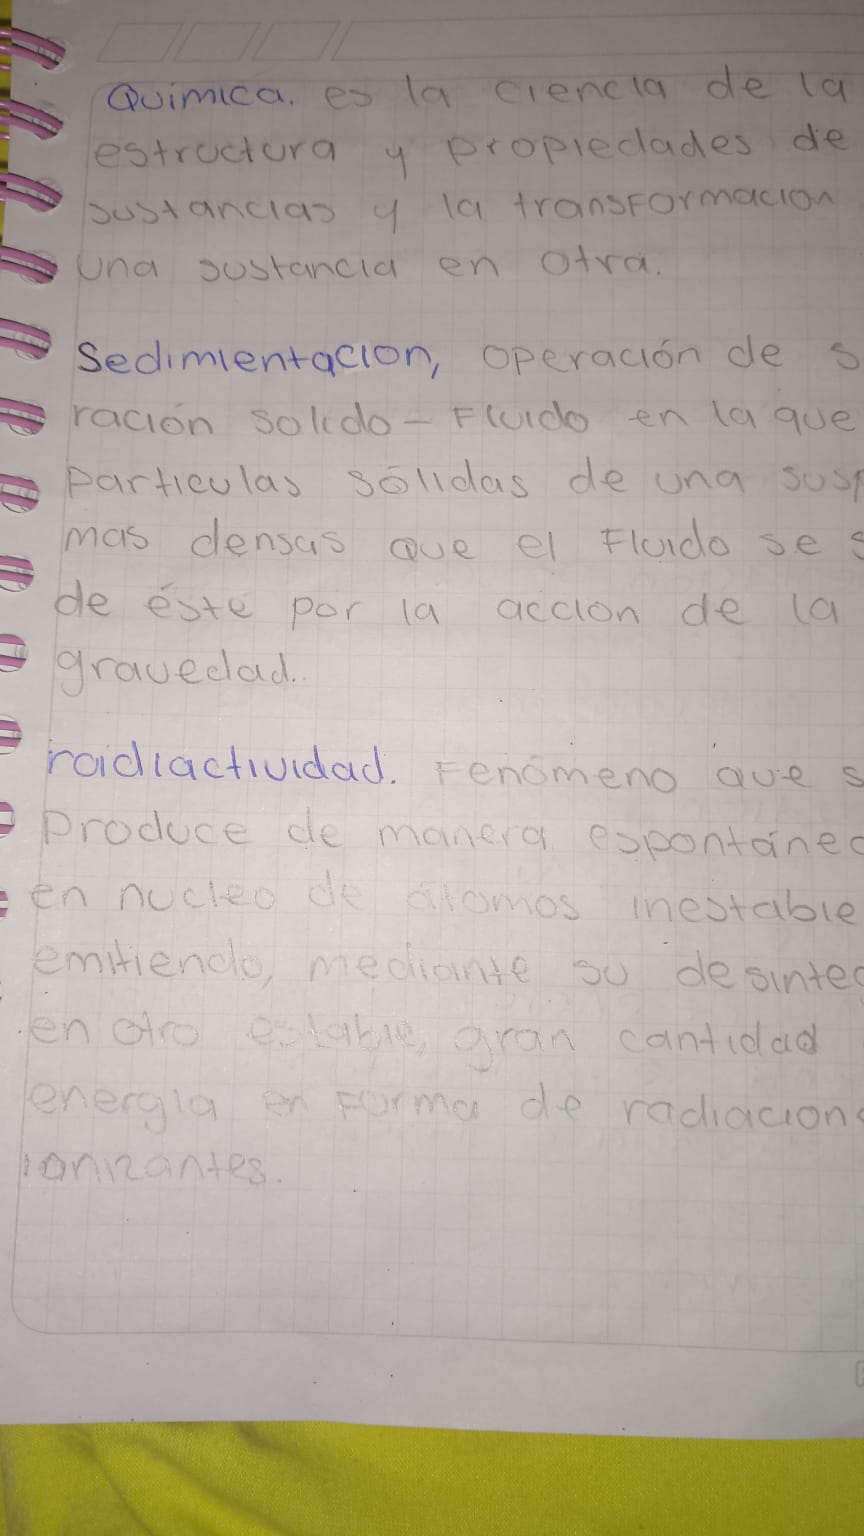 Quimica. es la ciencia de la
estructura y propiedades de
sustancias y la transformacion
una sustancia en otra.
Sedimientacion, operación de s
ración solido - Fluido en la que
particulas sólidas de una susp
mas densas que el Fluido se s
de éste por la accion de la
gravedad.
raidiactividad. Fenómeno que s
produce de manera espontánea
en nucleo de átomos inestable
emitiendo, mediante su desinteg
en otro estable, gran cantidad
energia en Forma de radiacion
ionizantes.